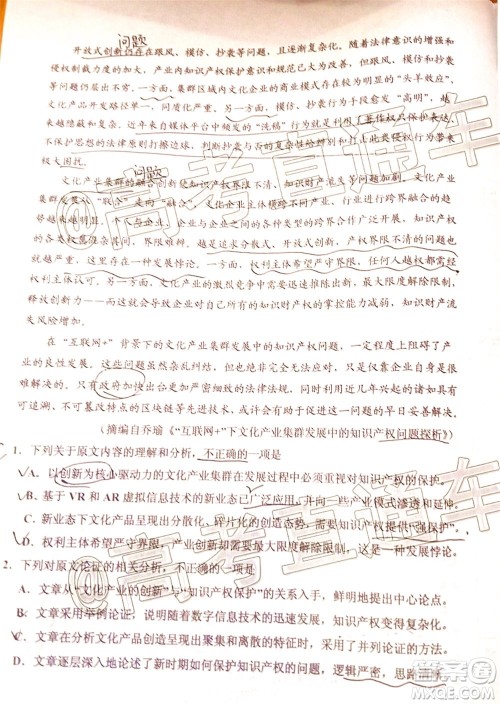 问题
开放式创新仍存在跟风、模仿、抄袭等问题，且逐渐复杂化。随着法律意识的增强和
侵权制裁力度的加大，产业内知识产权保护意识和规范已大为改善，但跟风、模仿、抄袭
等问题层出不穷。一方面，集群区域内文化企业的商业模式存在较为明显的“头羊效应”，
文化产品开发路径单一，同质化现象严重。另一方面，模仿、抄袭行为手段愈发“高明”，
越来越隐蔽和复杂。近年来自媒体平台中频发的“洗稿”行为就利用了著作权只保护表达、
不保护思想的法律原则打擦边球，判断抄袭与否的复杂性给辨别和打击此类侵权行为带来
极大困扰。
问题
文化产业集群的融合创新使知识产权界限不清。随着文化产业集群的发展，文化产业
发展从“联合”走向“融合”，文化产业之间、文化产业与其他行业进行跨界融合的趋
势更加明显，个人与企业、企业与企业之间的各种类型的跨界合作广泛开展，由此产生的
各类权属愈加繁杂、界限难辨。越是追求分散式、开放式创新，产权界限不清的问题也
就越严重，这里存在一种发展悖论。一方面，权利主体希望严守界限，任何人越权都需经
权利主体认可；另一方面，产业创新以资源共享为基本出发点，最大限度解除限制，
释放创新力，而这又会导致企业对自己所有的知识产权的实际控制力下降，知识财产流
失风险增加。
在“互联网+”背景下的文化产业集群发展中的知识产权问题，一定程度上影响了产
业的良性发展。这些问题虽然杂乱纠结，但并非完全无法解决，只是仅靠企业自身是很
难解决的。只有政府加快出台更具有适用性的法律法规，规范发展，加之以利用具有
可追溯、不可更改特点的区块链等先进技术，这些困扰行业许久的问题才能尽早妥善解决。
（摘编自乔瑜《“互联网+”下文化产业集群发展中的知识产权问题探析》）
1．下列关于原文内容的理解和分析，不正确的一项是
A．以创新为核心驱动力的文化产业集群在发展过程中必须重视对知识产权的保护。
B．基于 VR 和 AR 虚拟信息技术的新业态已广泛应用，并向一些产业模式渗透和延伸。
C．新业态下文化产品呈现出分散化、碎片化的创新类型，知识产权保护提倡“强保护”。
D．权利主体希望严守界限，产业创新却要最大限度解除限制，这里存在一种发展悖论。
2．下列对原文论证的相关分析，不正确的一项是
A．文章从“文化产业的创新”与“知识产权保护”的关系入手，鲜明地提出中心论点。
B．文章采用举例论证，说明随着数字信息技术的迅速发展，知识产权变得复杂化。
C．文章在分析文化产品创造呈现出聚集和离散的特征时，采用了对比论证。
D．文章逐层深入地论述了新时期如何保护知识产权的问题，逻辑严密，思路清晰。
@高考直通车
@高考直通车